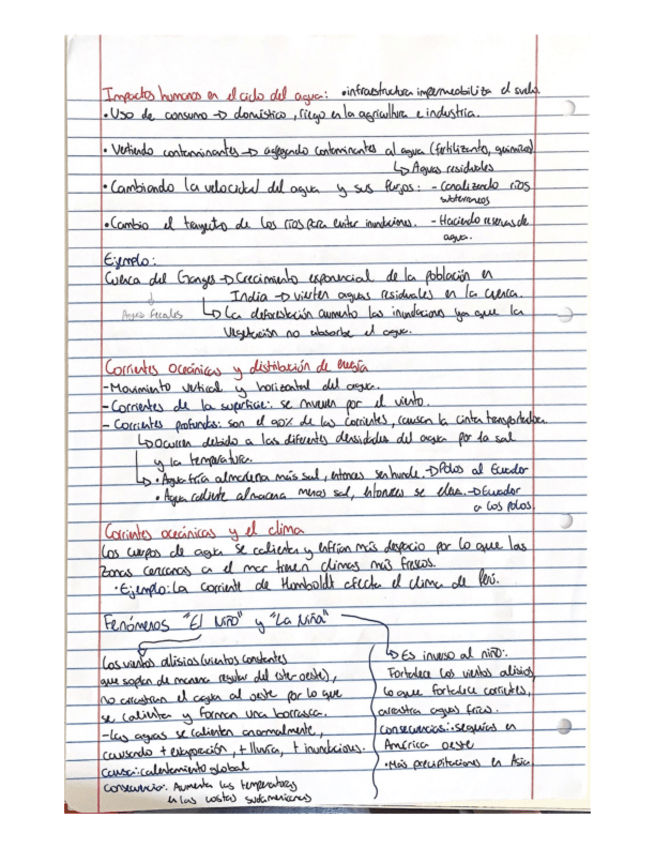 Impactos humanos en el ciclo del agua: •infraestructura impermeabiliza el suelo
• Uso de consumo → doméstico, riego en la agricultura e industria.
• Vertiendo contaminantes → agregando contaminantes al agua (fertilizante, químicos)
↳ Aguas residuales
• Cambiando la velocidad del agua y sus flujos: - Canalizando ríos
subterraneos
• Cambio el trayecto de los ríos para evitar inundaciones. - Haciendo reservas de
agua.
Ejemplo:
Cuenca del Ganges → Crecimiento exponencial de la población en
India → vierten aguas residuales en la cuenca.
Aguas fecales ↳ La deforestación aumenta las inundaciones ya que la
vegetación no absorbe el agua.
Corrientes oceánicas y distribución de energía
- Movimiento vertical y horizontal del agua.
- Corrientes de la superficie: se mueven por el viento.
- Corrientes profundas: son el 90% de las corrientes, causan la cinta transportadora.
↳ Ocurren debido a las diferentes densidades del agua por la sal
y la temperatura.
↳ • Agua fría almacena más sal, entonces se hunde. → Polos al Ecuador
• Agua caliente almacena menos sal, entonces se eleva. → Ecuador
a los polos.
Corrientes oceánicas y el clima
Los cuerpos de agua se calientan y enfrían más despacio por lo que las
zonas cercanas a el mar tienen climas más frescos.
• Ejemplo: La corriente de Humboldt afecta el clima de Perú.
Fenómenos "El Niño" y "La Niña"
Los vientos alisios (vientos constantes
que soplan de manera regular del este-oeste),
no arrastran el agua al oeste por lo que
se calienta y forman una borrasca.
- Las aguas se calientan anormalmente,
causando + evaporación, + lluvia, + inundaciones.
Causa: calentamiento global
Consecuencia: Aumenta las temperaturas
en las costas sudamericanas
↳ Es inverso al niño:
Fortalece los vientos alisios,
lo que fortalece corrientes,
arrastra aguas frías.
consecuencias: sequías en
América oeste
• Más precipitaciones en Asia